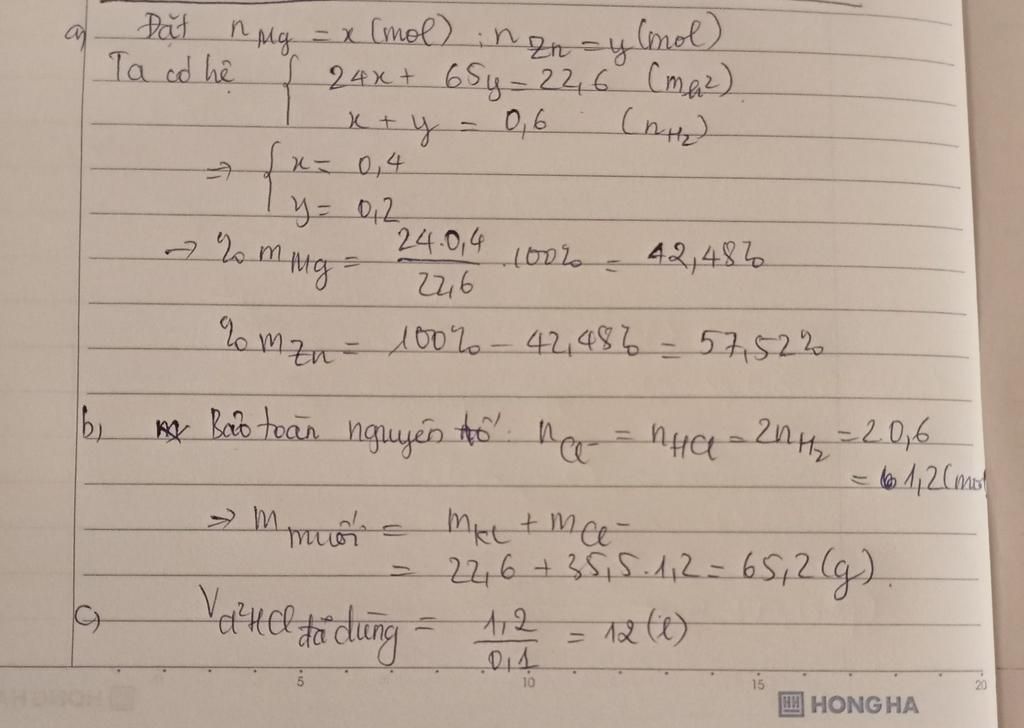 a) Đặt n Mg = x (mol) ; n Zn = y (mol)
Ta có hệ { 24x + 65y = 22,6 (m h²)
x + y = 0,6 (n H₂)
⇒ { x = 0,4
y = 0,2
→ % m Mg = 24.0,4 / 22,6 . 100% = 42,48%
% m Zn = 100% - 42,48% = 57,52%
b, Bảo toàn nguyên tố: n Cl⁻ = n HCl = 2n H₂ = 2.0,6
= 1,2 (mol
⇒ m muối = m KL + m Cl⁻
= 22,6 + 35,5.1,2 = 65,2 (g)
c) V d²HCl đã dùng = 1,2 / 0,1 = 12 (l)
5 10 15 20
HONG HA